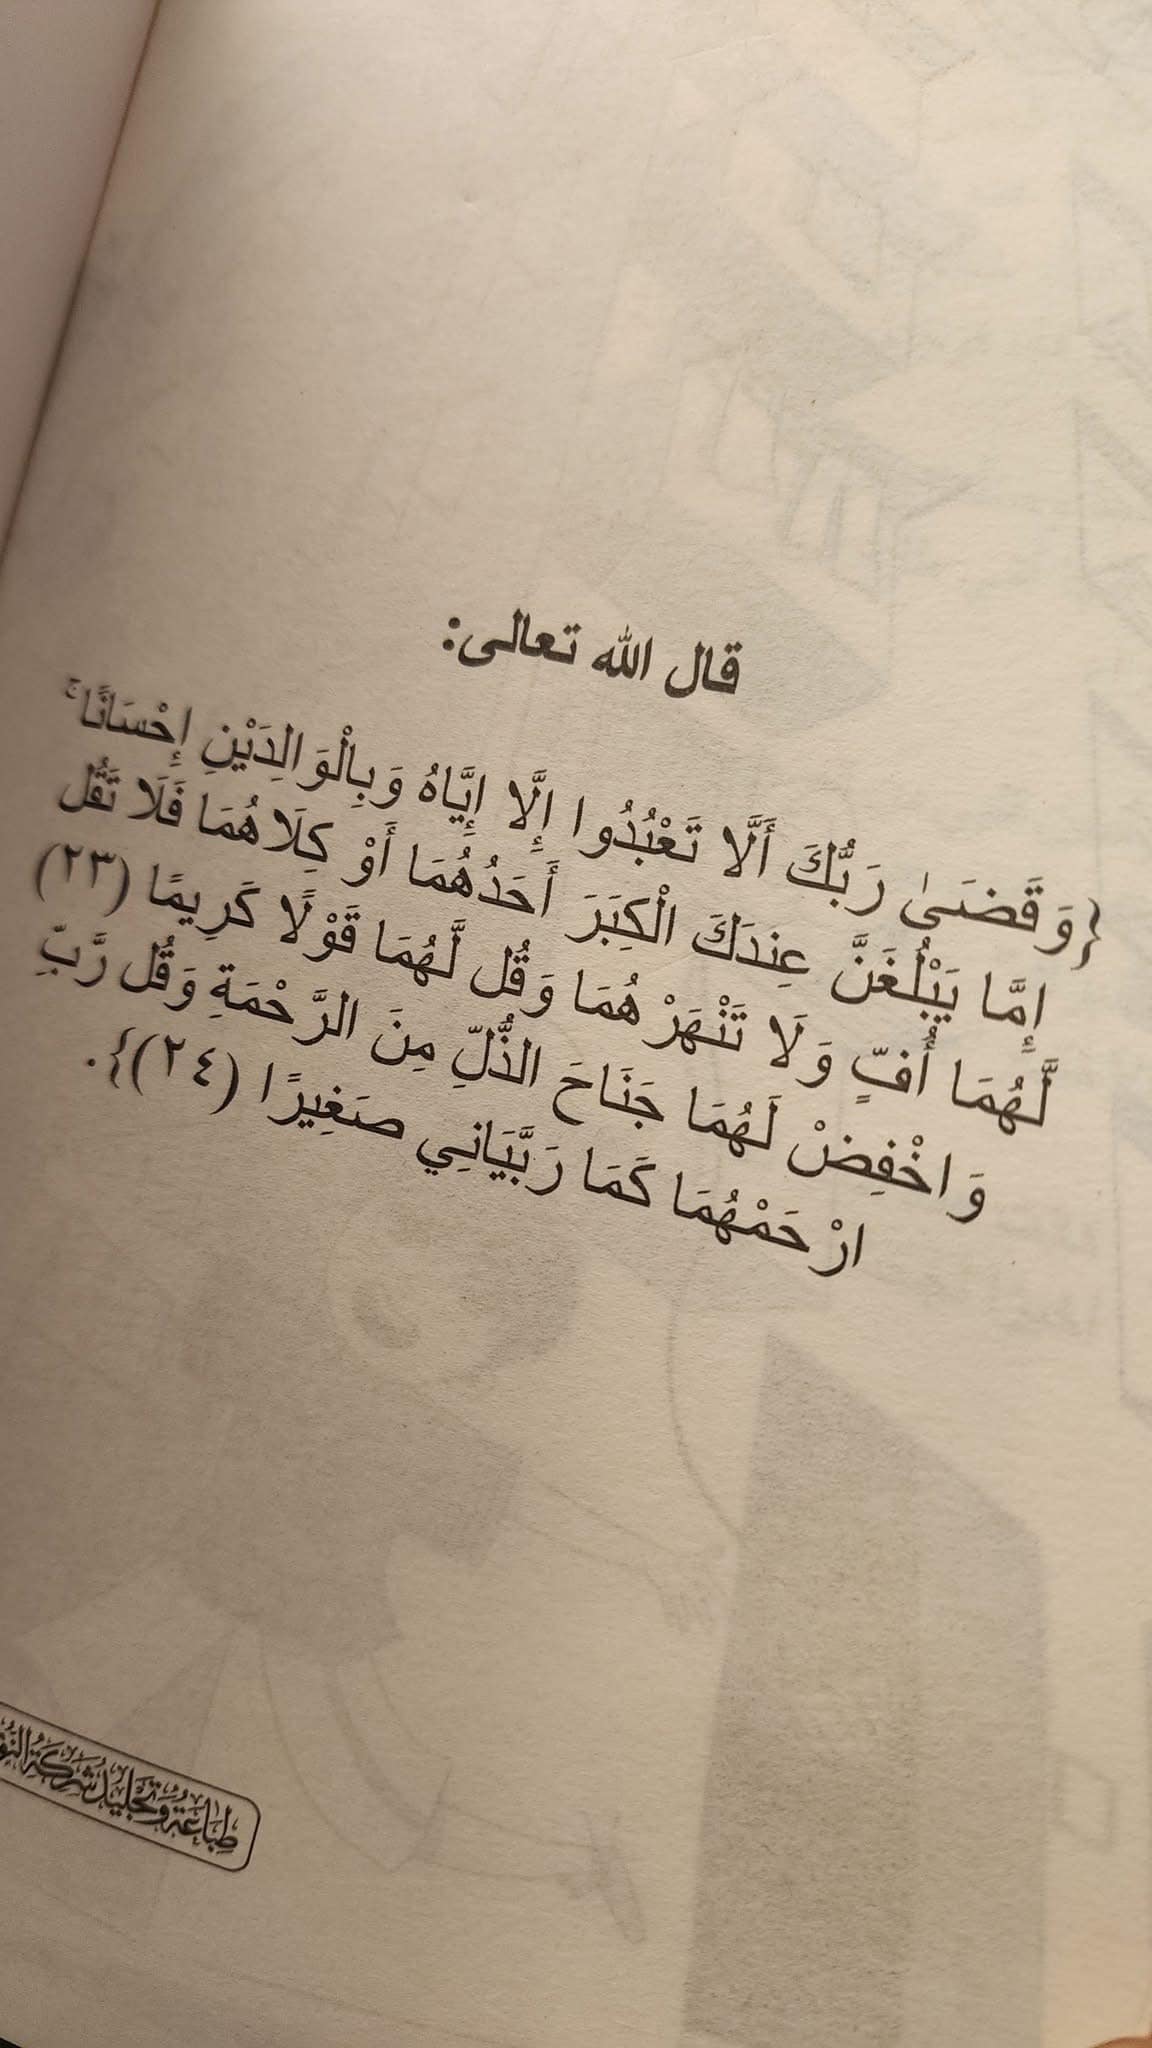 قال الله تعالى:
{وَقَضَىٰ رَبُّكَ أَلَّا تَعْبُدُوا إِلَّا إِيَّاهُ وَبِالْوَالِدَيْنِ إِحْسَانًا ۚ
إِمَّا يَبْلُغَنَّ عِندَكَ الْكِبَرَ أَحَدُهُمَا أَوْ كِلَاهُمَا فَلَا تَقُل
لَّهُمَا أُفٍّ وَلَا تَنْهَرْهُمَا وَقُل لَّهُمَا قَوْلًا كَرِيمًا (٢٣)
وَاخْفِضْ لَهُمَا جَنَاحَ الذُّلِّ مِنَ الرَّحْمَةِ وَقُل رَّبِّ
ارْحَمْهُمَا كَمَا رَبَّيَانِي صَغِيرًا (٢٤)}.
طِبَاعَةُ وَتَجْلِيدُ شَرِكَةِ